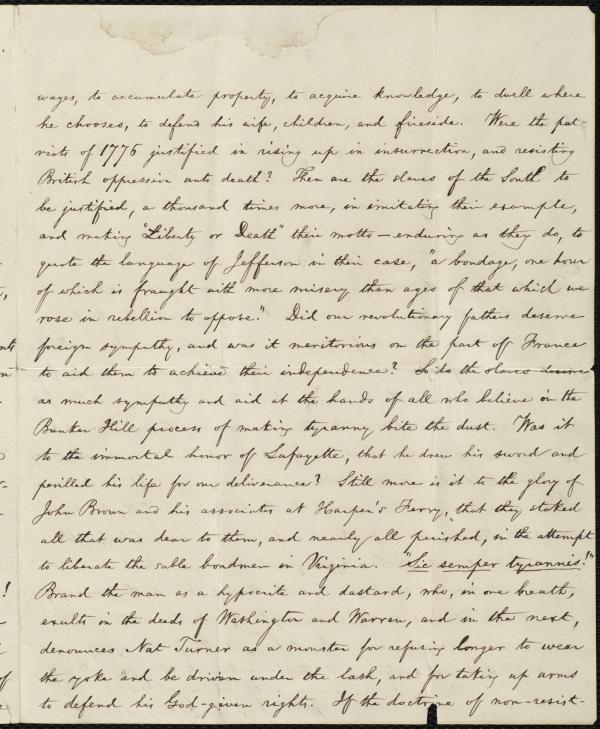 wages, to accumulate property, to acquire knowledge, to dwell where
he chooses, to defend his wife, children, and fireside. Were the pat-
riots of 1776 justified in rising up in insurrection, and resisting
British oppression unto death? Then are the slaves of the South to
be justified, a thousand times more, in imitating their example,
and making "Liberty or Death" their motto — enduring as they do, to
quote the language of Jefferson in their case, "a bondage, one hour
of which is fraught with more misery than ages of that which we
rose in rebellion to oppose." Did our revolutionary fathers deserve
foreign sympathy, and was it meritorious on the part of France
to aid them to achieve their independence? So do the slaves deserve
as much sympathy and aid at the hands of all who believe in the
Bunker Hill process of making tyranny bite the dust. Was it
to the immortal honor of Lafayette, that he drew his sword and
perilled his life for our deliverance? Still more is it to the glory of
John Brown and his associates at Harper's Ferry, that they staked
all that was dear to them, and nearly all perished, in the attempt
to liberate the sable bondmen in Virginia. "Sic semper tyrannis!"
Brand the man as a hypocrite and dastard, who, in one breath,
exults in the deeds of Washington and Warren, and in the next,
denounces Nat Turner as a monster for refusing longer to wear
the yoke and be driven under the lash, and for taking up arms
to defend his God-given rights. If the doctrine of non-resist-